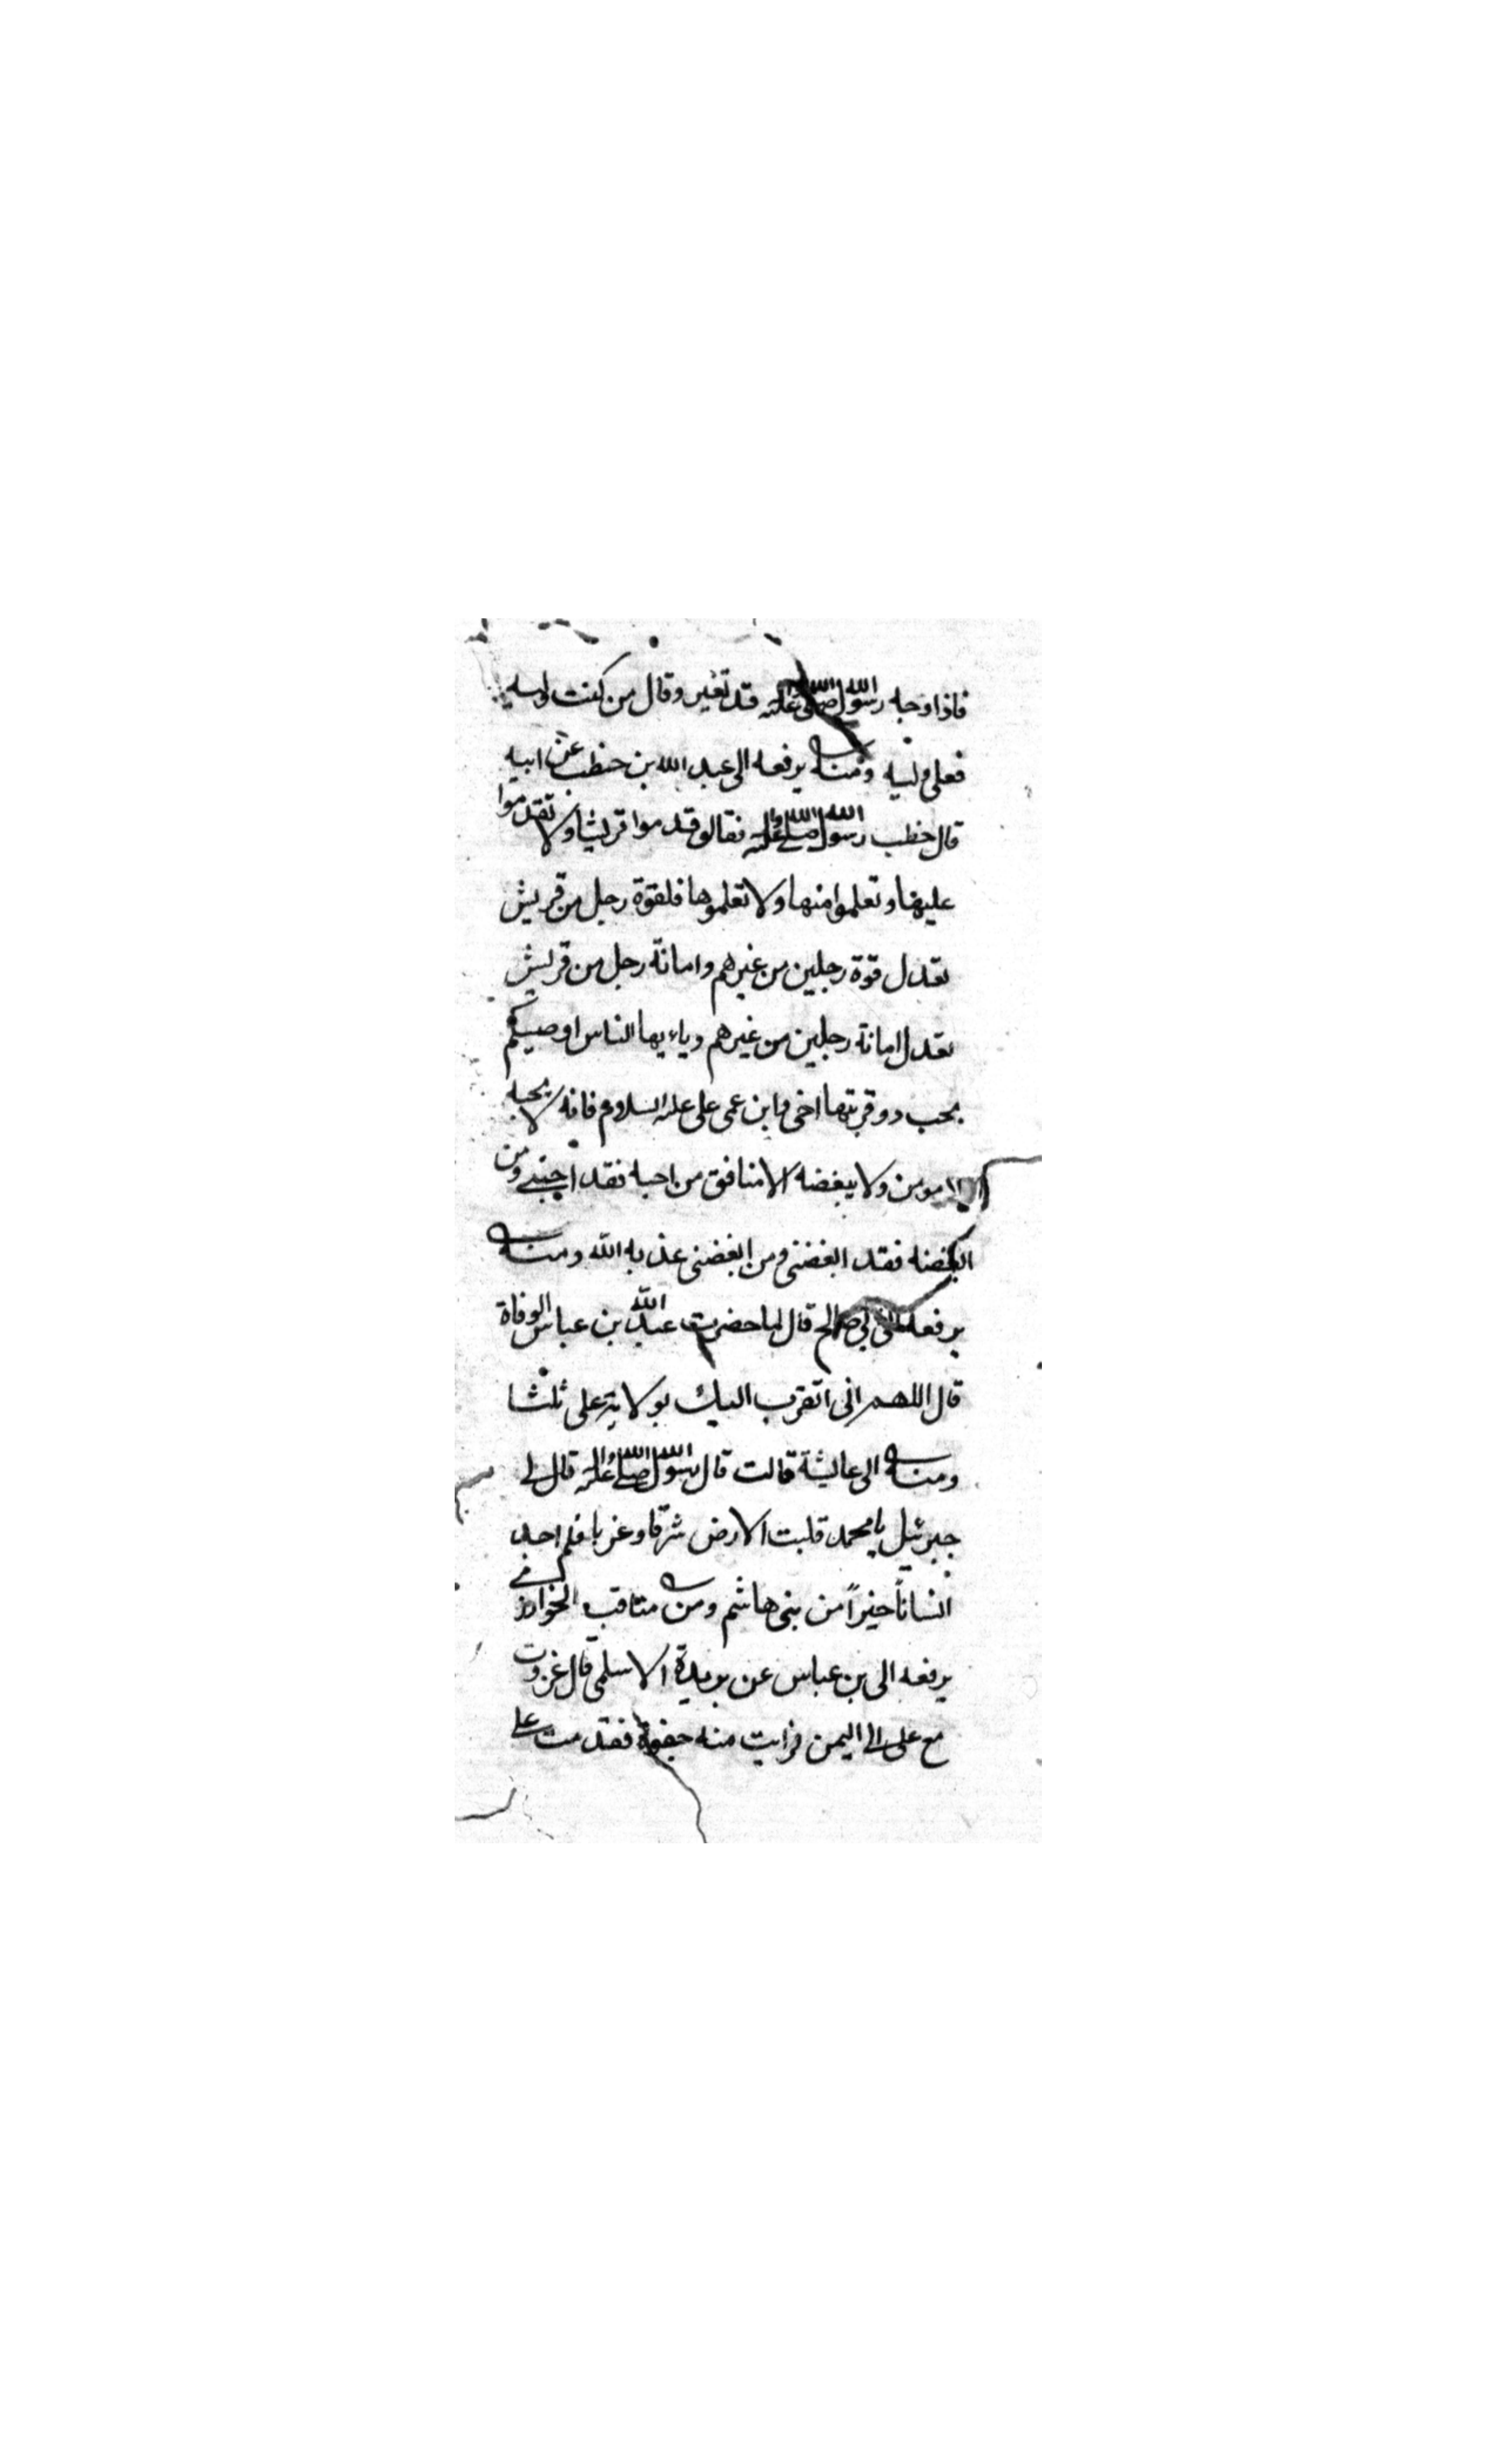 فاذا وجه رسول الله صلى الله عليه قد تغير وقال من كنت وليه
فعلى وليه ومنه يرفعه الى عبد الله بن حنطب عن ابيه
قال خطب رسول الله صلى الله عليه فقال قدموا قريشا ولا تقدموا
عليها وتعلموا منها ولا تعلموها فلقوة رجل من قريش
تعدل قوة رجلين من غيرهم وامانة رجل من قريش
تعدل امانة رجلين من غيرهم ويا ايها الناس اوصيكم
بحب ذو قربتها اخى وابن عمى على عليه السلام فانه لا يحبه
الا مومن ولا يبغضه الا منافق من احبه فقد احبنى ومن
ابغضه فقد ابغضنى ومن ابغضنى عذبه الله ومنه
يرفعه الى ابى صالح قال لما حضرت عبد الله بن عباس الوفاة
قال اللهم انى اتقرب اليك بولاية على ثلثا
ومنه الى عايشة قالت قال رسول الله صلى الله عليه قال لى
جبرئيل يا محمد قلبت الارض شرقا وغربا فلم احد
انسانا خيرا من بنى هاشم ومن مناقب الخوارزمى
يرفعه الى بن عباس عن بريدة الاسلمى قال غزوت
مع على الى اليمن فرايت منه جفوة فقدمت على